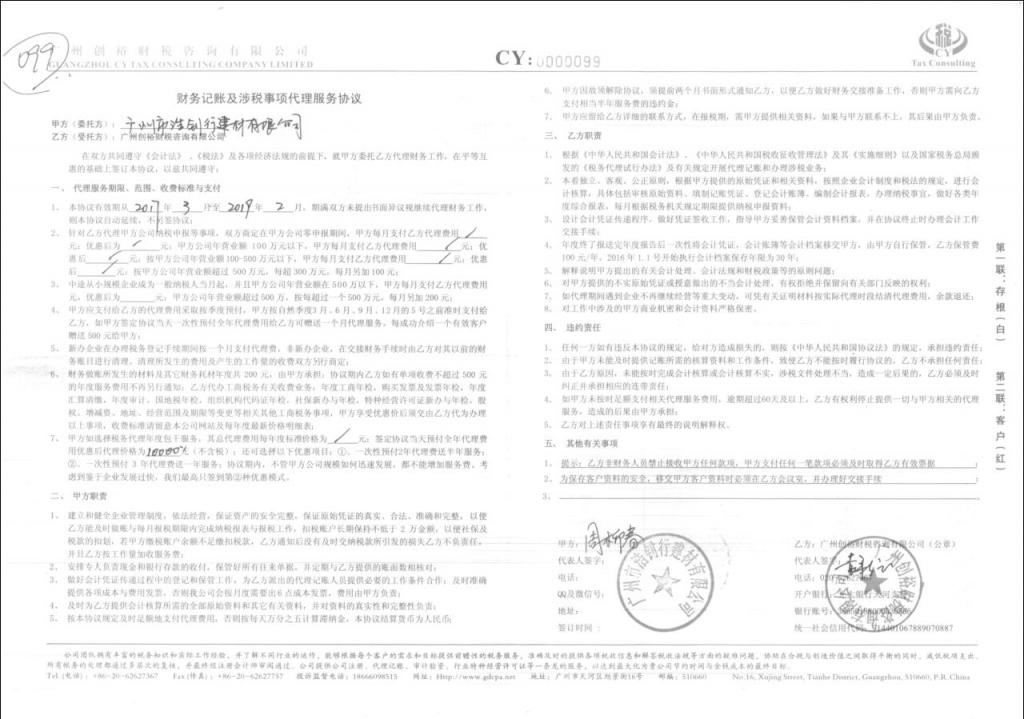 099
广州创裕财税咨询有限公司
GUANGZHOU CY TAX CONSULTING COMPANY LIMITED
CY: 0000099
Tax Consulting
财务记账及涉税事项代理服务协议
甲方（委托方）：广州市浩钊行建材有限公司
乙方（受托方）：广州创裕财税咨询有限公司
在双方共同遵守《会计法》、《税法》及各项经济法规的前提下，就甲方委托乙方代理财务工作，在平等互
惠的基础上签订本协议，以兹共同遵守：
一、 代理服务期限、范围、收费标准与支付
1、 本协议有效期从 2017 年 3 月至 2019 年 2 月，期满双方未提出书面异议视继续代理财务工作，
则本协议自动延续，不另签协议；
2、 针对乙方代理甲方公司纳税申报等事项，双方商定在甲方公司零申报期间，甲方每月支付乙方代理费用
元；优惠后为 元；甲方公司年营业额 100 万元以下，甲方每月支付乙方代理费用 元；优
惠后 元；按甲方公司年营业额100-500万元以下，甲方每月支付乙方代理费用 元；优惠
后 元；按甲方公司年营业额超过 500 万元，每超 300 万元，每月另加 100 元；
3、 中途从小规模企业成为一般纳税人当月起，并且甲方公司年营业额在 500 万以下，甲方每月支付乙方代理费用
元，优惠后为 元；甲方公司年营业额超过 500 万，按每超过一个 500 万元，每月另加 200 元；
4、 甲方应支付给乙方的代理费用采取按季度预付，甲方按自然季度3月、6月、9月、12月的 5 号之前准时支付给
乙方，如甲方签定协议当天一次性预付全年代理费用给乙方可赠送一个月代理服务，每成功介绍一个有效客户
赠送 500 元给甲方；
5、 新办企业在办理税务登记手续期间按一个月支付代理费，非新办企业，在交接财务手续时由乙方对其以前的财
务账目进行清理。清理所发生的费用及产生的工作量的收费双方另行商定；
6、 财务做账所发生的材料及其它财务耗材年度共 200 元，由甲方承担；协议期内乙方如有单项收费不超过 500元
的年度服务费用不再另行通知；乙方代办工商税务有关收费业务：年度工商年检、购买发票及发票年检、年度
汇算清缴、年度审计、国地税年检、组织机构代码证年检、社保新办与年检、特种经营许可证新办与年检、股
权、增减资、地址、经营范围及期限等变更等相关其他工商税务事项，甲方享受优惠价后须交由乙方代为办理
以上事项，收费标准请留意本公司网站及每年度最新价格明细表；
7、 甲方如选择税务代理年度包干服务，其总代理费用每年度标准价格为 元；签定协议当天预付全年代理费
用优惠后代理价格为 10000元（不含税）；还可选择以下优惠项目：①、一次性预付2年代理费送半年服务；
②、一次性预付 3 年代理费送一年服务；协议期内，不管甲方公司规模如何迅速发展，都不能增加服务费。考
虑到鉴于企业发展过快，我们最高只签到第②种优惠模式。
二、 甲方职责
1、 建立和健全企业管理制度，依法经营，保证资产的安全完整，保证原始凭证的真实、合法、准确和完整。以便
乙方能及时做账与每月报税期限内完成纳税报表与报税工作，扣税账户长期保持不低于 2 万金额，以便社保及
税款的扣划，若甲方缴税账户余额不足缴扣税款，乙方通知后没有及时交纳税款所引发的损失乙方不负责任，
并且乙方按工作量加收服务费；
2、 安排专人负责现金和银行存款的收付，保管好所有往来单据，并定期与乙方提供的账面数相核对；
3、 做好会计凭证传递过程中的登记和保管工作，为乙方派出的代理记账人员提供必要的工作条件合作；及时准确
提供各项成本与费用发票，否则我公司会按月度需要出6点成本发票，费用由甲方负责；
4、 及时为乙方提供会计核算所需的全部原始资料和其它有关资料，并对资料的真实性和完整性负责；
5、 按本协议规定及时足额地支付代理费用，否则按每天万分之五计算滞纳金，本协议结算货币为人民币；
6、 甲方因故须解除协议，须提前两个月书面形式通知乙方，以便乙方做好财务交接准备工作，否则甲方需向乙方
支付相当半年服务费的违约金；
7、 甲方应留给乙方详细的联系方式，在报税期，需甲方提供相关资料，如果与甲方联系不上，其后果由甲方负责。
三、 乙方职责
1、 根据《中华人民共和国会计法》、《中华人民共和国税收征收管理法》及其《实施细则》以及国家税务总局颁
发的《税务代理试行办法》及有关规定开展代理记账和办理涉税业务；
2、 本着独立、客观、公正原则，根据甲方提供的原始凭证和相关资料，按照企业会计制度和税法的规定，进行会
计核算，具体包括审核原始资料、填制记账凭证、登记会计账簿、编制会计报表、办理纳税事宜，做好各类年
度综合报表，每月根据税务机关规定期限提供纳税申报资料；
3、 设计会计凭证传递程序，做好凭证签收工作，指导甲方妥善保管会计资料档案，并在协议终止时办理会计工作
交接手续；
4、 年度终了报送完年度报告后一次性将会计凭证、会计账簿等会计档案移交甲方，由甲方自行保管，乙方保管费
100 元/年，2016 年 1.1 号开始执行会计档案保存年限为30 年；
5、 解释说明甲方提出的有关会计处理、会计法规和财税政策等的原则问题；
6、 对甲方提供的不实原始凭证或授意做出的不当会计处理，有权拒绝并保留向有关部门反映的权利；
7、 如代理期间遇到企业不再继续经营等重大变动，可凭有关证明材料按实际代理时段结清代理费用，余款退还；
8、 对工作中涉及的甲方商业机密和会计资料严格保密。
四、 违约责任
1、 任何一方如有违反本协议的规定，给对方造成损失的，则按《中华人民共和国协议法》的规定，承担违约责任；
2、 由于甲方未能及时提供记账所需的核算资料和工作条件，致使乙方不能按时履行协议的，乙方不承担任何责任；
3、 由于乙方原因，未能按时完成会计核算或会计核算不实，涉税文件处理不当，造成一定后果的，乙方必须及时
纠正并承担相应的连带责任；
4、 如甲方未按时足额支付相关代理服务费用，逾期超过60天及以上，乙方有权利停止提供一切与甲方相关的代理
服务，造成的后果由甲方承担；
5、 乙方对上述责任事项享有最终的说明解释权。
五、 其他有关事项
1、 提示：乙方非财务人员禁止接收甲方任何款项，甲方支付任何一笔款项必须及时取得乙方有效票据 ；
2、 为保存客户资料的安全，移交甲方客户资料时必须在乙方会议室，并办理好交接手续 ；
3、
甲方： 周柳春
代表人签字：
电话：
QQ及微信号：
地址：
签订时间：
广州市浩钊行建材有限公司
乙方：广州创裕财税咨询有限公司（公章）
代表人签字：
电话：020-
开户银行：
银行账号：
统一社会信用代码：914401067889070887
第一联：存根（白） 第二联：客户（红）
公司团队拥有丰富的税务知识和实际工作经验，并了解不同行业的运作，能够根据每个客户的需求和目标提供前瞻性的税务服务。准确及时的提供各项税收信息和解答税收法规等方面的疑难问题，协助在合规与创造价值之间取得平衡的同时，减低税项支出。
所有账务的处理都通过多层次的复核，并最终经注册会计师审阅通过。公司提供公司注册、代理记账、审计验资、行业特种经营许可证等一条龙的服务，以达到最大化为贵公司节约时间与金钱成本的最终目标。
Tel（电话）：+86-20-62627367 Fax（传真）：+86-20-62627757 投诉监督电话：18666098515 网址：Http://www.gdcpa.net 地址：广州市天河区旭景街16号 邮编：510660 No.16, Xujing Street, Tianhe District, Guangzhou, 510660, P.R. China